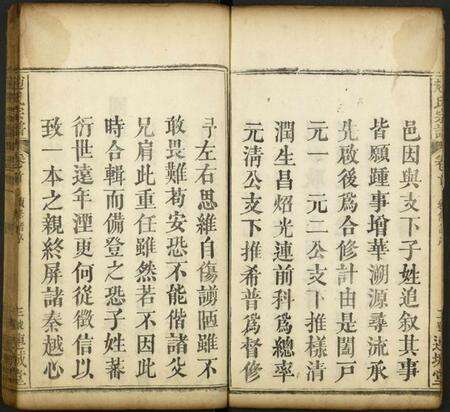 邑因與支下子姓追叙其事
皆願踵事增華溯源尋流承
先啟後為合修計由是闔戸
元一 元二公支下推樣清
潤生昌炤光連前科為總率
元清公支下推希普為督修
左右思維自傷謭陋雖不
敢畏難苟安恐不能偕諸父
兄肩此重任雖然若不因此
時合輯而備登之恐子姓蕃
衍世遠年湮更何從徵信以
致一本之親終屏諸秦越心
氏宗譜 卷首
連城堂